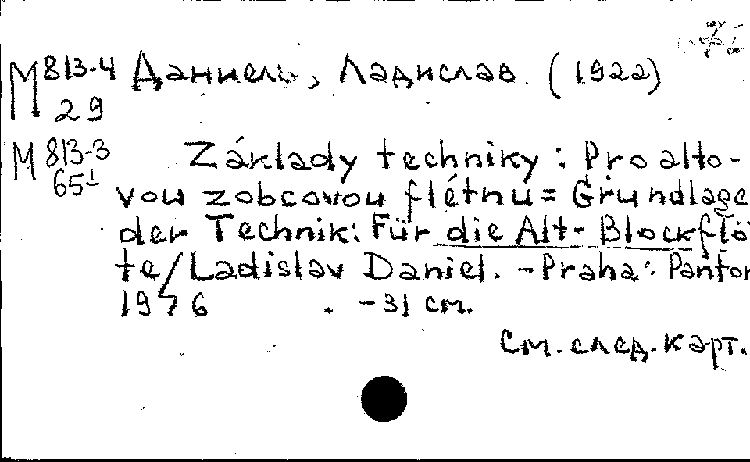 М 813-4 Даниель, Ладислав (1922)
29
М 813-3 Základy techniky: Pro alto-
65-1 vou zobcovou flétnu = Grundlage
der Technik: Für die Alt-Blockflö
te/Ladislav Daniel. - Praha: Panton
1976 . - 31 см.
См. след. карт.